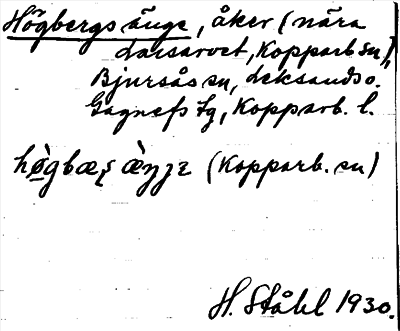 Högbergs änge, åker (nära
Larsarvet, Kopparb sn),
Bjursås sn, Leksands o.
Gagnefs tg, Kopparb. l.
hø̀gbæʂ æ̀ŋɟɛ (Kopparb. sn)
H. Ståhl 1930.